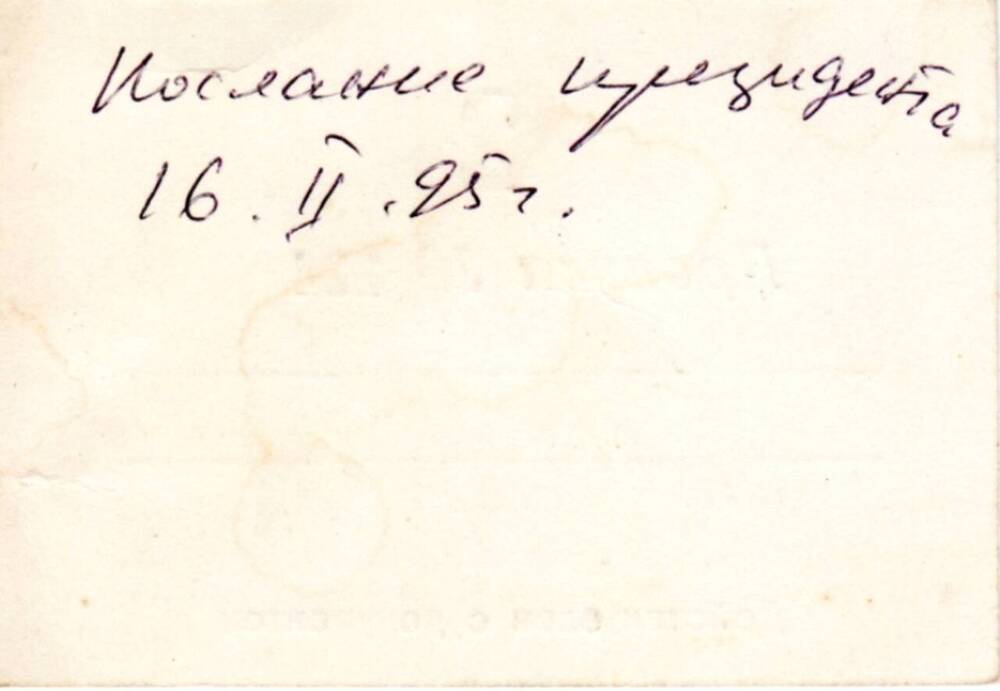 Послание президента
16. II .95г.